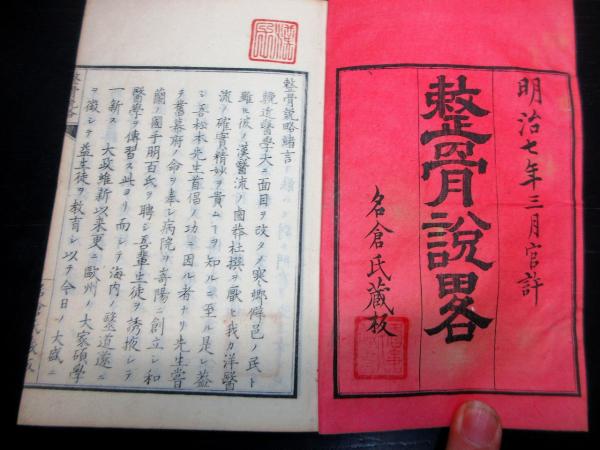 明治七年三月官許
整骨說畧
名倉氏藏板
整骨說略緒言
輓近醫學大ニ面目ヲ改タメ寒鄉僻邑ノ民ト
雖ヒ彼ノ漢醫流ノ鹵莽杜撰ヲ厭ヒ我カ洋醫
流ノ確實精妙ヲ貴ムヿヲ知ルニ至ル是レ蓋
シ吾松本先生首倡ノ功ニ因ル者ナリ先生嘗
テ舊幕府ノ命ヲ奉シ病院ヲ崎陽ニ創立シ和
蘭ノ國手朋百氏ヲ聘シ吾輩生徒ヲ誘掖シテ
醫學ヲ傳習ス此ヨリ而シテ海内ノ醫道遂ニ
一新ス 大政維新以來更ニ歐州ノ大家碩學
ヲ徵シテ益生徒ヲ教育シ以テ今日ノ大盛ニ